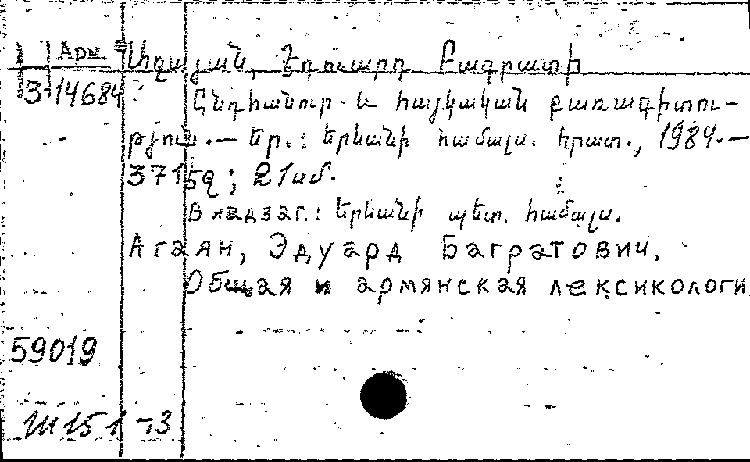 Арм Աղայան, Էդուարդ Բագրատի
3-14684 Ընդհանուր և հայկական բառագիտու-
թյուն. — Եր.: Երևանի համալս. հրատ., 1984. —
371 էջ; 21 սմ.
В надзаг.: Երևանի պետ. համալս.
Агаян, Эдуард Багратович.
Общая и армянская лексикологи
59019
151-73